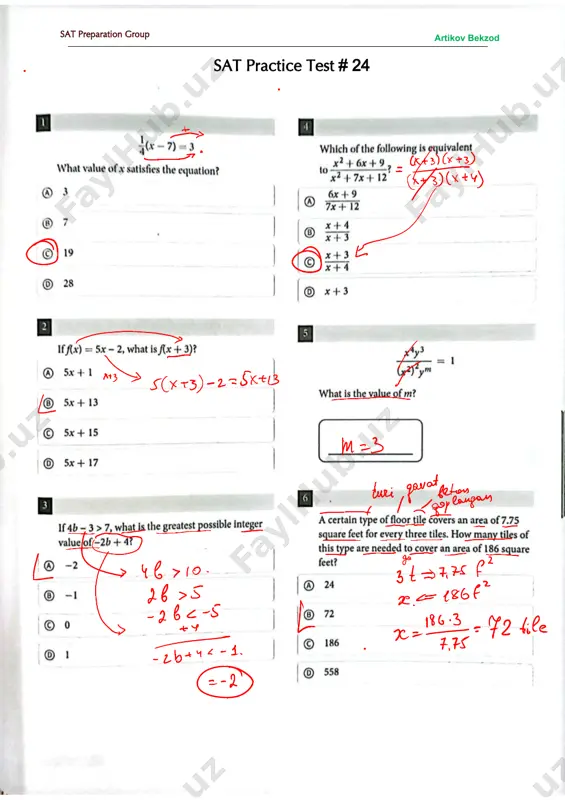 SAT Preparation Group
Artikov Bekzod
SAT Practice Test # 24
1
1/4(x − 7) = 3
+
What value of x satisfies the equation?
A 3
B 7
C 19
D 28
2
If f(x) = 5x − 2, what is f(x + 3)?
A 5x + 1
5(x+3)−2=5x+13
B 5x + 13
C 5x + 15
D 5x + 17
3
If 4b − 3 > 7, what is the greatest possible integer
value of −2b + 4?
A −2
B −1
C 0
D 1
4b > 10.
2b > 5
−2b < −5
+4
−2b+4 < −1.
= −2
4
Which of the following is equivalent
to (x² + 6x + 9)/(x² + 7x + 12)? = (x+3)(x+3)/(x+3)(x+4)
A (6x + 9)/(7x + 12)
B (x + 4)/(x + 3)
C (x + 3)/(x + 4)
D x + 3
5
x⁴y³/(x²)²yᵐ = 1
What is the value of m?
m=3
turi gavat
6
A certain type of floor tile covers an area of 7.75
square feet for every three tiles. How many tiles of
this type are needed to cover an area of 186 square
feet?
A 24
B 72
C 186
D 558
3t ⇒ 7,75 f²
x ⇐ 186 f²
x = 186·3/7,75 = 72 tile
FaylHub.uz
FaylHub.uz
FaylHub.uz
uz
uz
uz